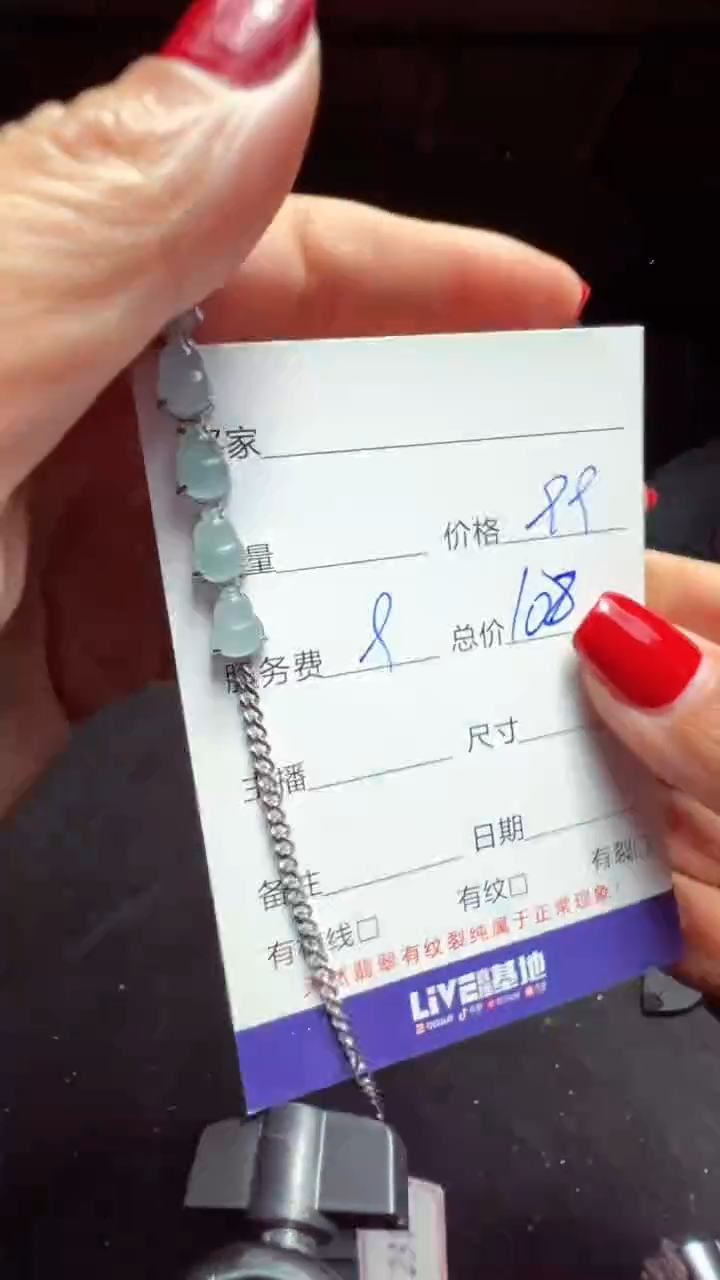 家
量 价格 99
服务费 9 总价 108
主播 尺寸
备注 日期
有线□ 有纹□ 有裂□
天然翡翠有纹裂纯属于正常现象
LiVE 基地